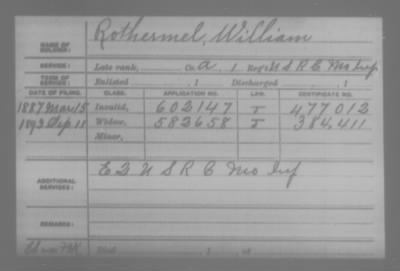 NAME OF SOLDIER: Rothermel, William
SERVICE: Late rank, Co. A, 1 Reg't U S R C Mo Inf
TERM OF SERVICE: Enlisted , 1 Discharged , 1
DATE OF FILING. CLASS. APPLICATION NO. LAW. CERTIFICATE NO.
1887 Mar 15 Invalid, 602147 J 477.012
1893 Sep 11 Widow, 582658 J 384,411
Minor,
ADDITIONAL SERVICES: E 2 U S R C Mo Inf
REMARKS:
Died , 1 , at